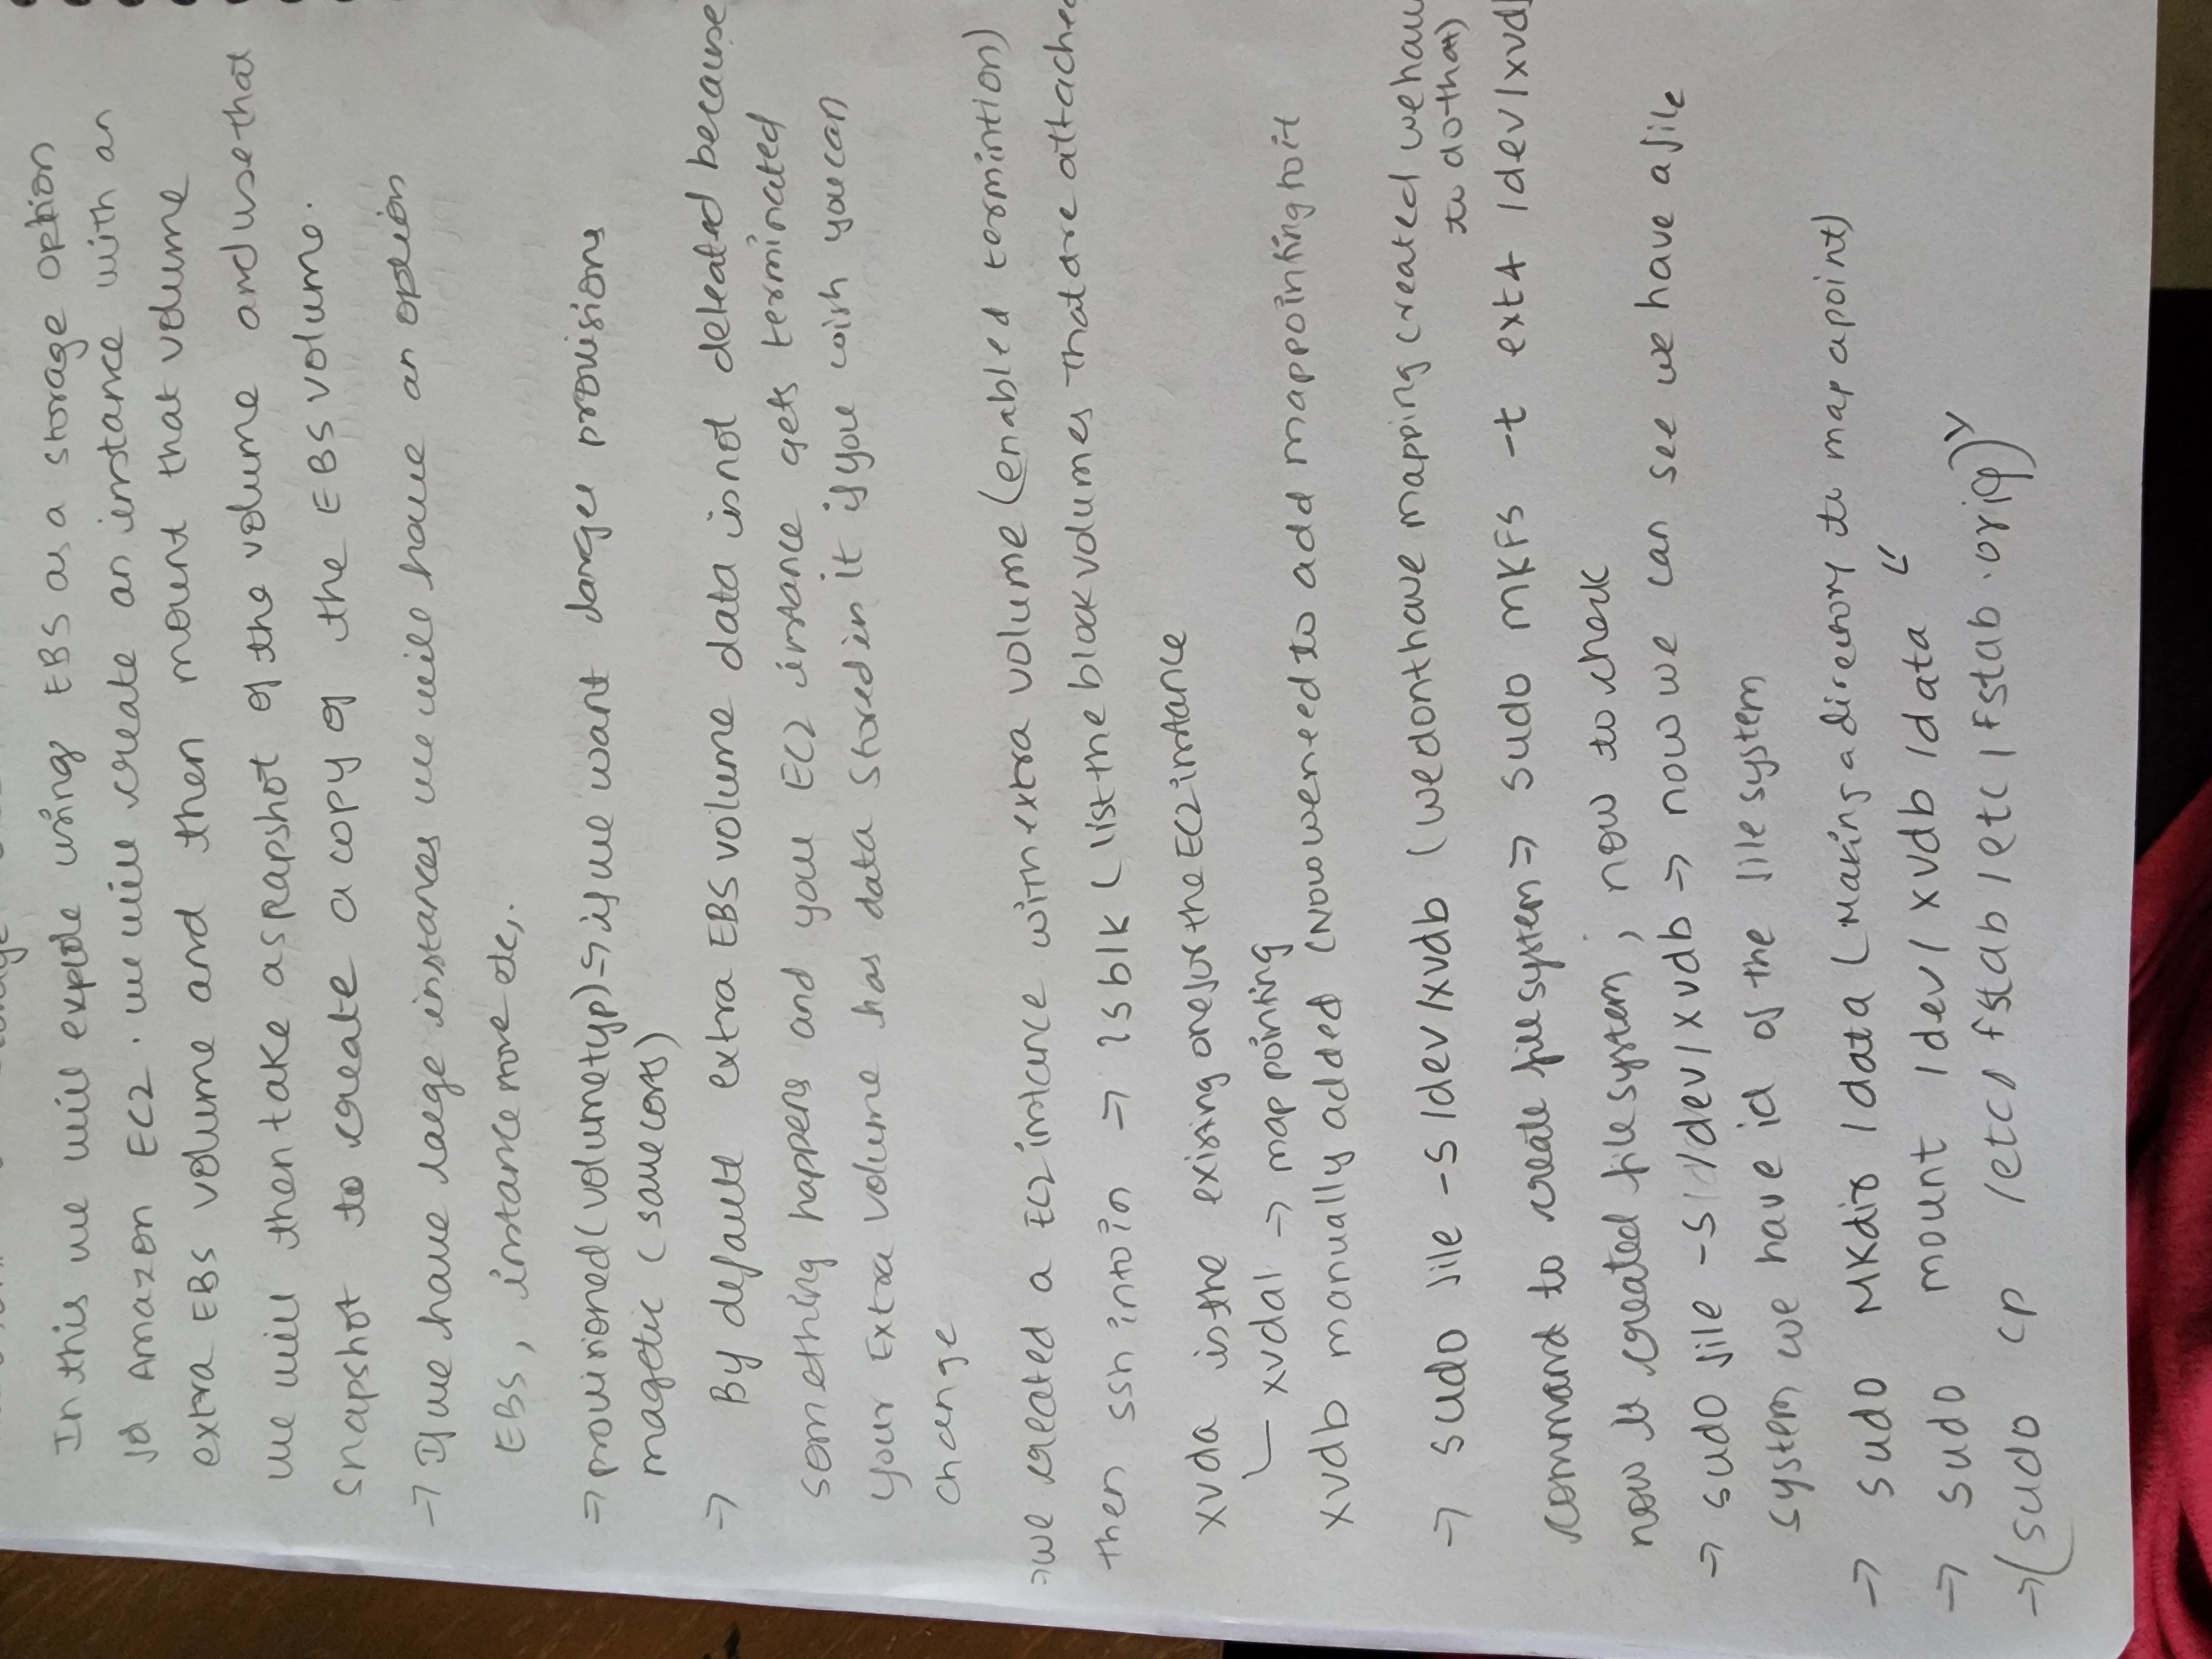 storage
In this we will explole using EBS as a storage option
for Amazon EC2. we will create an instance with an
extra EBS volume and then mount that volume
we will then take a snapshot of the volume and use that
snapshot to create a copy of the EBS volume.
→ If we have large instances we will have an option
EBS, instance more etc,.
→ provisioned (volume typ) → if we want larger provisions
magetic (save costs)
→ By default extra EBS volume data is not deleated because
something happens and your EC2 instance gets terminated
your Extra volume has data stored in it if you wish you can
change
→ we created a EC2 instance with extra volume (enabled termintion)
then ssh into in → lsblk ( list the block volumes that are attache
xvda is the existing one for the EC2 instance
└ xvda1 → map pointing
xvdb manually added (Now we need to add map pointing to it
→ sudo file -s /dev/xvdb (we dont have mapping created we have
to do that)
command to create file system → sudo mKFS -t ext4 /dev/xvdb
now it created file system, now to check
→ sudo file -s /dev/xvdb → now we can see we have a file
system we have id of the file system
→ sudo MKdir /data (Making a directory to map a point)
→ sudo mount /dev/xvdb /data
→ (sudo cp /etc/fstab /etc/Fstab.orig)